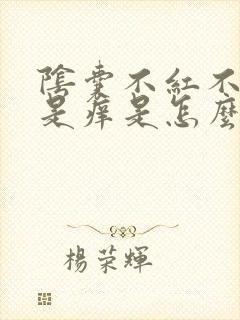 陰囊不紅不
是癢是怎麼
楊榮輝